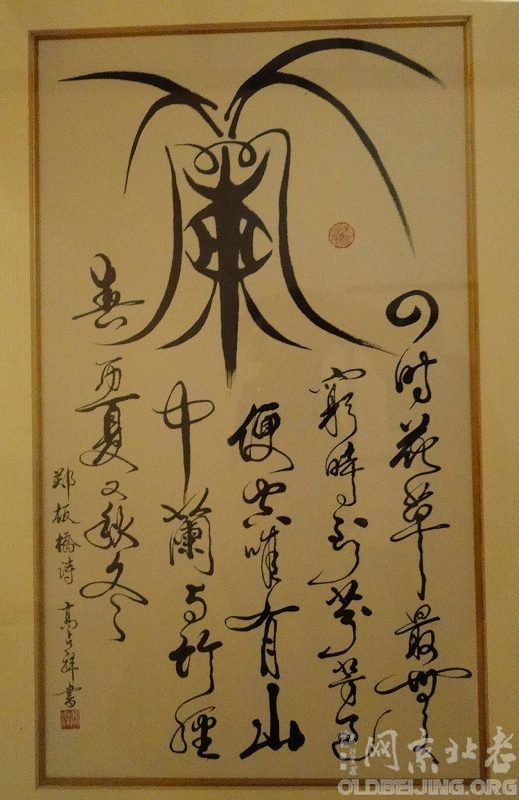 蘭
四时花草最無
窮時到芬芳過
便空唯有山
中蘭与竹經
春历夏又秋冬
郑板橋诗 高占祥書
老北京网
OLDBEIJING.ORG